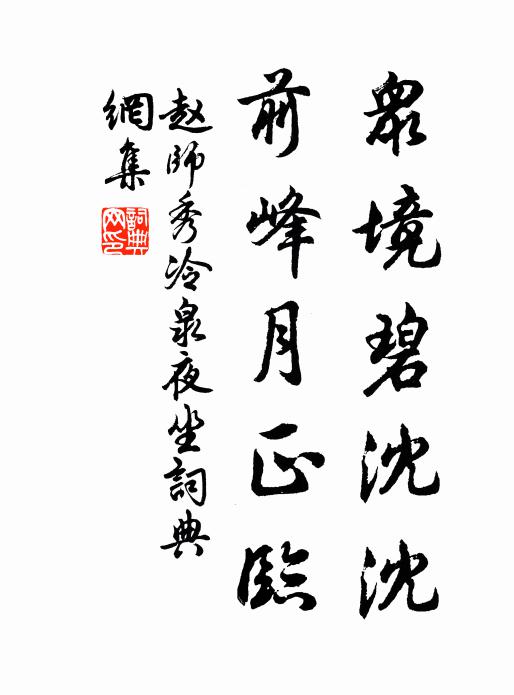 眾境碧沈沈
前峰月正臨
赵師秀冷泉夜坐詞典
網集
詞典網印